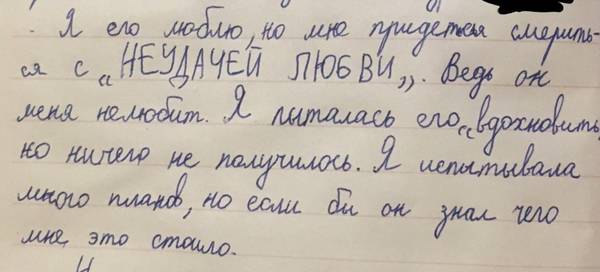 . Я его люблю, но мне придеться смерить-
ся с „НЕУДАЧЕЙ ЛЮБВИ„. Ведь он
меня нелюбит. Я пыталась его „вдохновить,
но ничего не получилось. Я испытывала
много планов, но если бы он знал чего
мне это стоило.